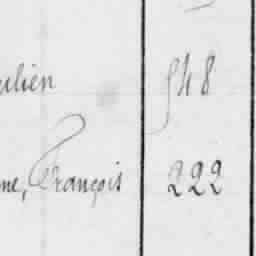 ulien 548
me, François 222